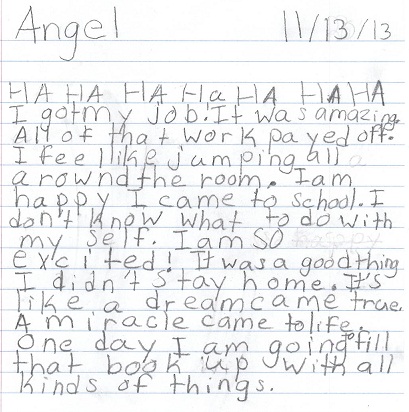 Angel 11/13/13
HA HA HA Ha HA HAHA
I got my job! It was amazing.
All of that work payed off.
I feel like jumping all
around the room. I am
happy I came to school. I
don't know what to do with
my self. I am SO
excited! It was a good thing
I didn't stay home. It's
like a dream came true.
A miracle came to life.
One day I am going to fill
that book up with all
kinds of things.